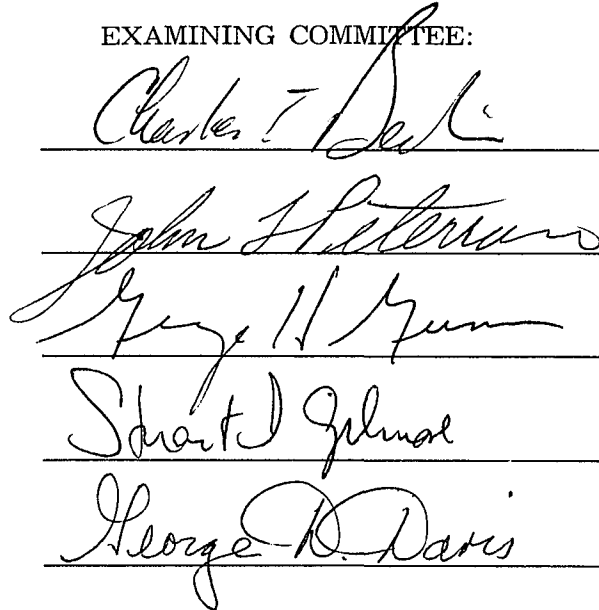 EXAMINING COMMITTEE:
Charles I. Berlin
John L Peterson
George H
Stuart I Gilmore
George D. Davis